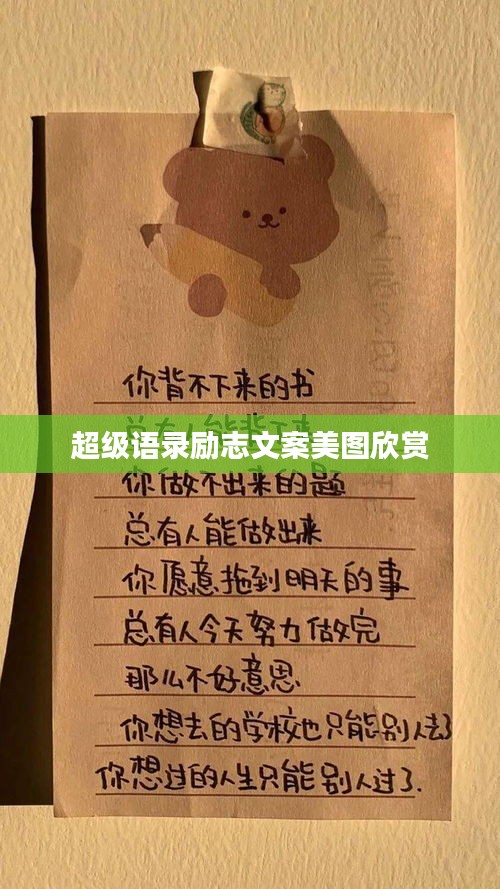 你背不下来的书
总有人能背下来
超级语录励志文案美图欣赏
你做不出来的题
总有人能做出来
你愿意拖到明天的事
总有人今天努力做完
那么不好意思
你想去的学校也只能别人去了
你想过的人生只能别人过了.